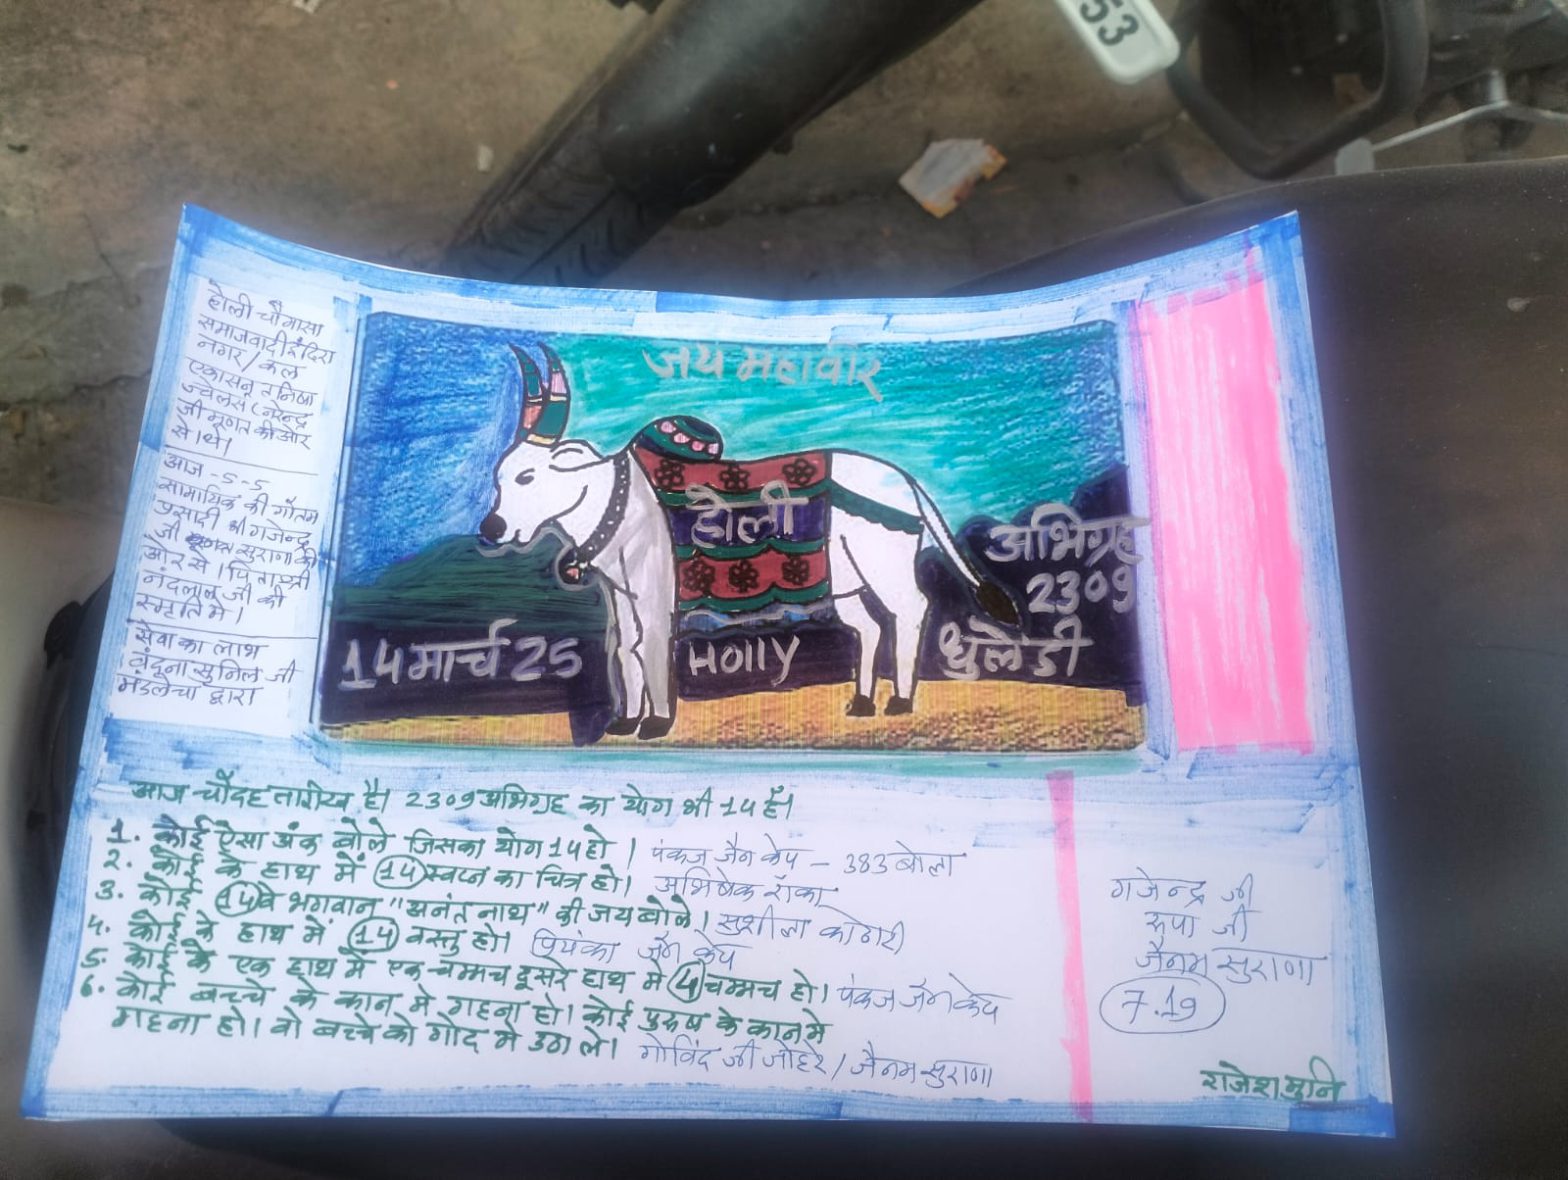 53
होली चौमासा
समाजवादी इंदिरा
नगर / कल
की ओर
से थी।
आज S-S
सामायिक की
रतलाम में।
सेवा का लाभ
वंदना सुमिल जी
मंडलेचा द्वारा
जय महावीर
होली
अभिग्रह
2309
14 मार्च 25
Holly
धुलेडी
आज चौदह तारीख है। 2309 अभिग्रह का योग भी 14 हैं।
1. कोई ऐसा अंक बोले जिसका योग 14 हो। पंकज जैन केप - 383 बोला
2. कोई के हाथ में 14 स्वप्न का चित्र हो। अभिषेक रांका
3. कोई 14 वे भगवान "अनंतनाथ" की जय बोले। सुशीला कोठारी
4. कोई के हाथ में 14 वस्तु हो। प्रियंका जैन केप
5. कोई के एक हाथ में एक चम्मच दूसरे हाथ में 4 चम्मच हो। पंकज जैन केप
6. कोई बच्चे के कान में गहना हो। कोई पुरुष के कान में
गहना हो। वो बच्चे को गोद में उठा ले। गोविंद जी जोहरे / जैनम सुराणा
गजेन्द्र जी
रूपा जी
जैनम सुराणा
7.19
राजेश मुनि